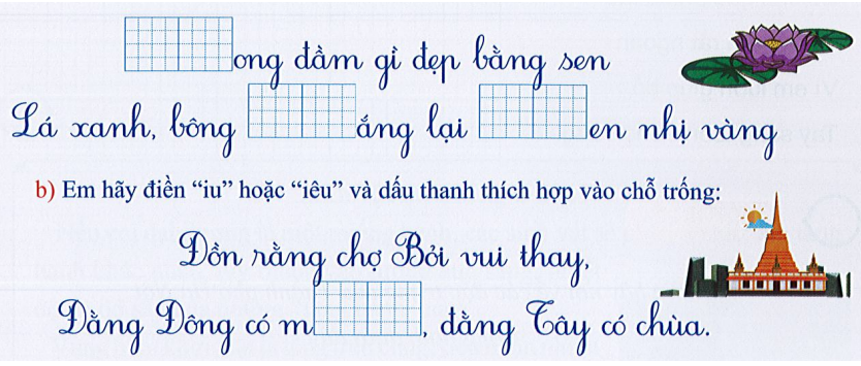 ong đầm gì đẹp bằng sen
Lá xanh, bông ắng lại en nhị vàng
b) Em hãy điền “iu” hoặc “iêu” và dấu thanh thích hợp vào chỗ trống:
Đồn rằng chợ Bỏi vui thay,
Đằng Đông có m , đằng Tây có chùa.